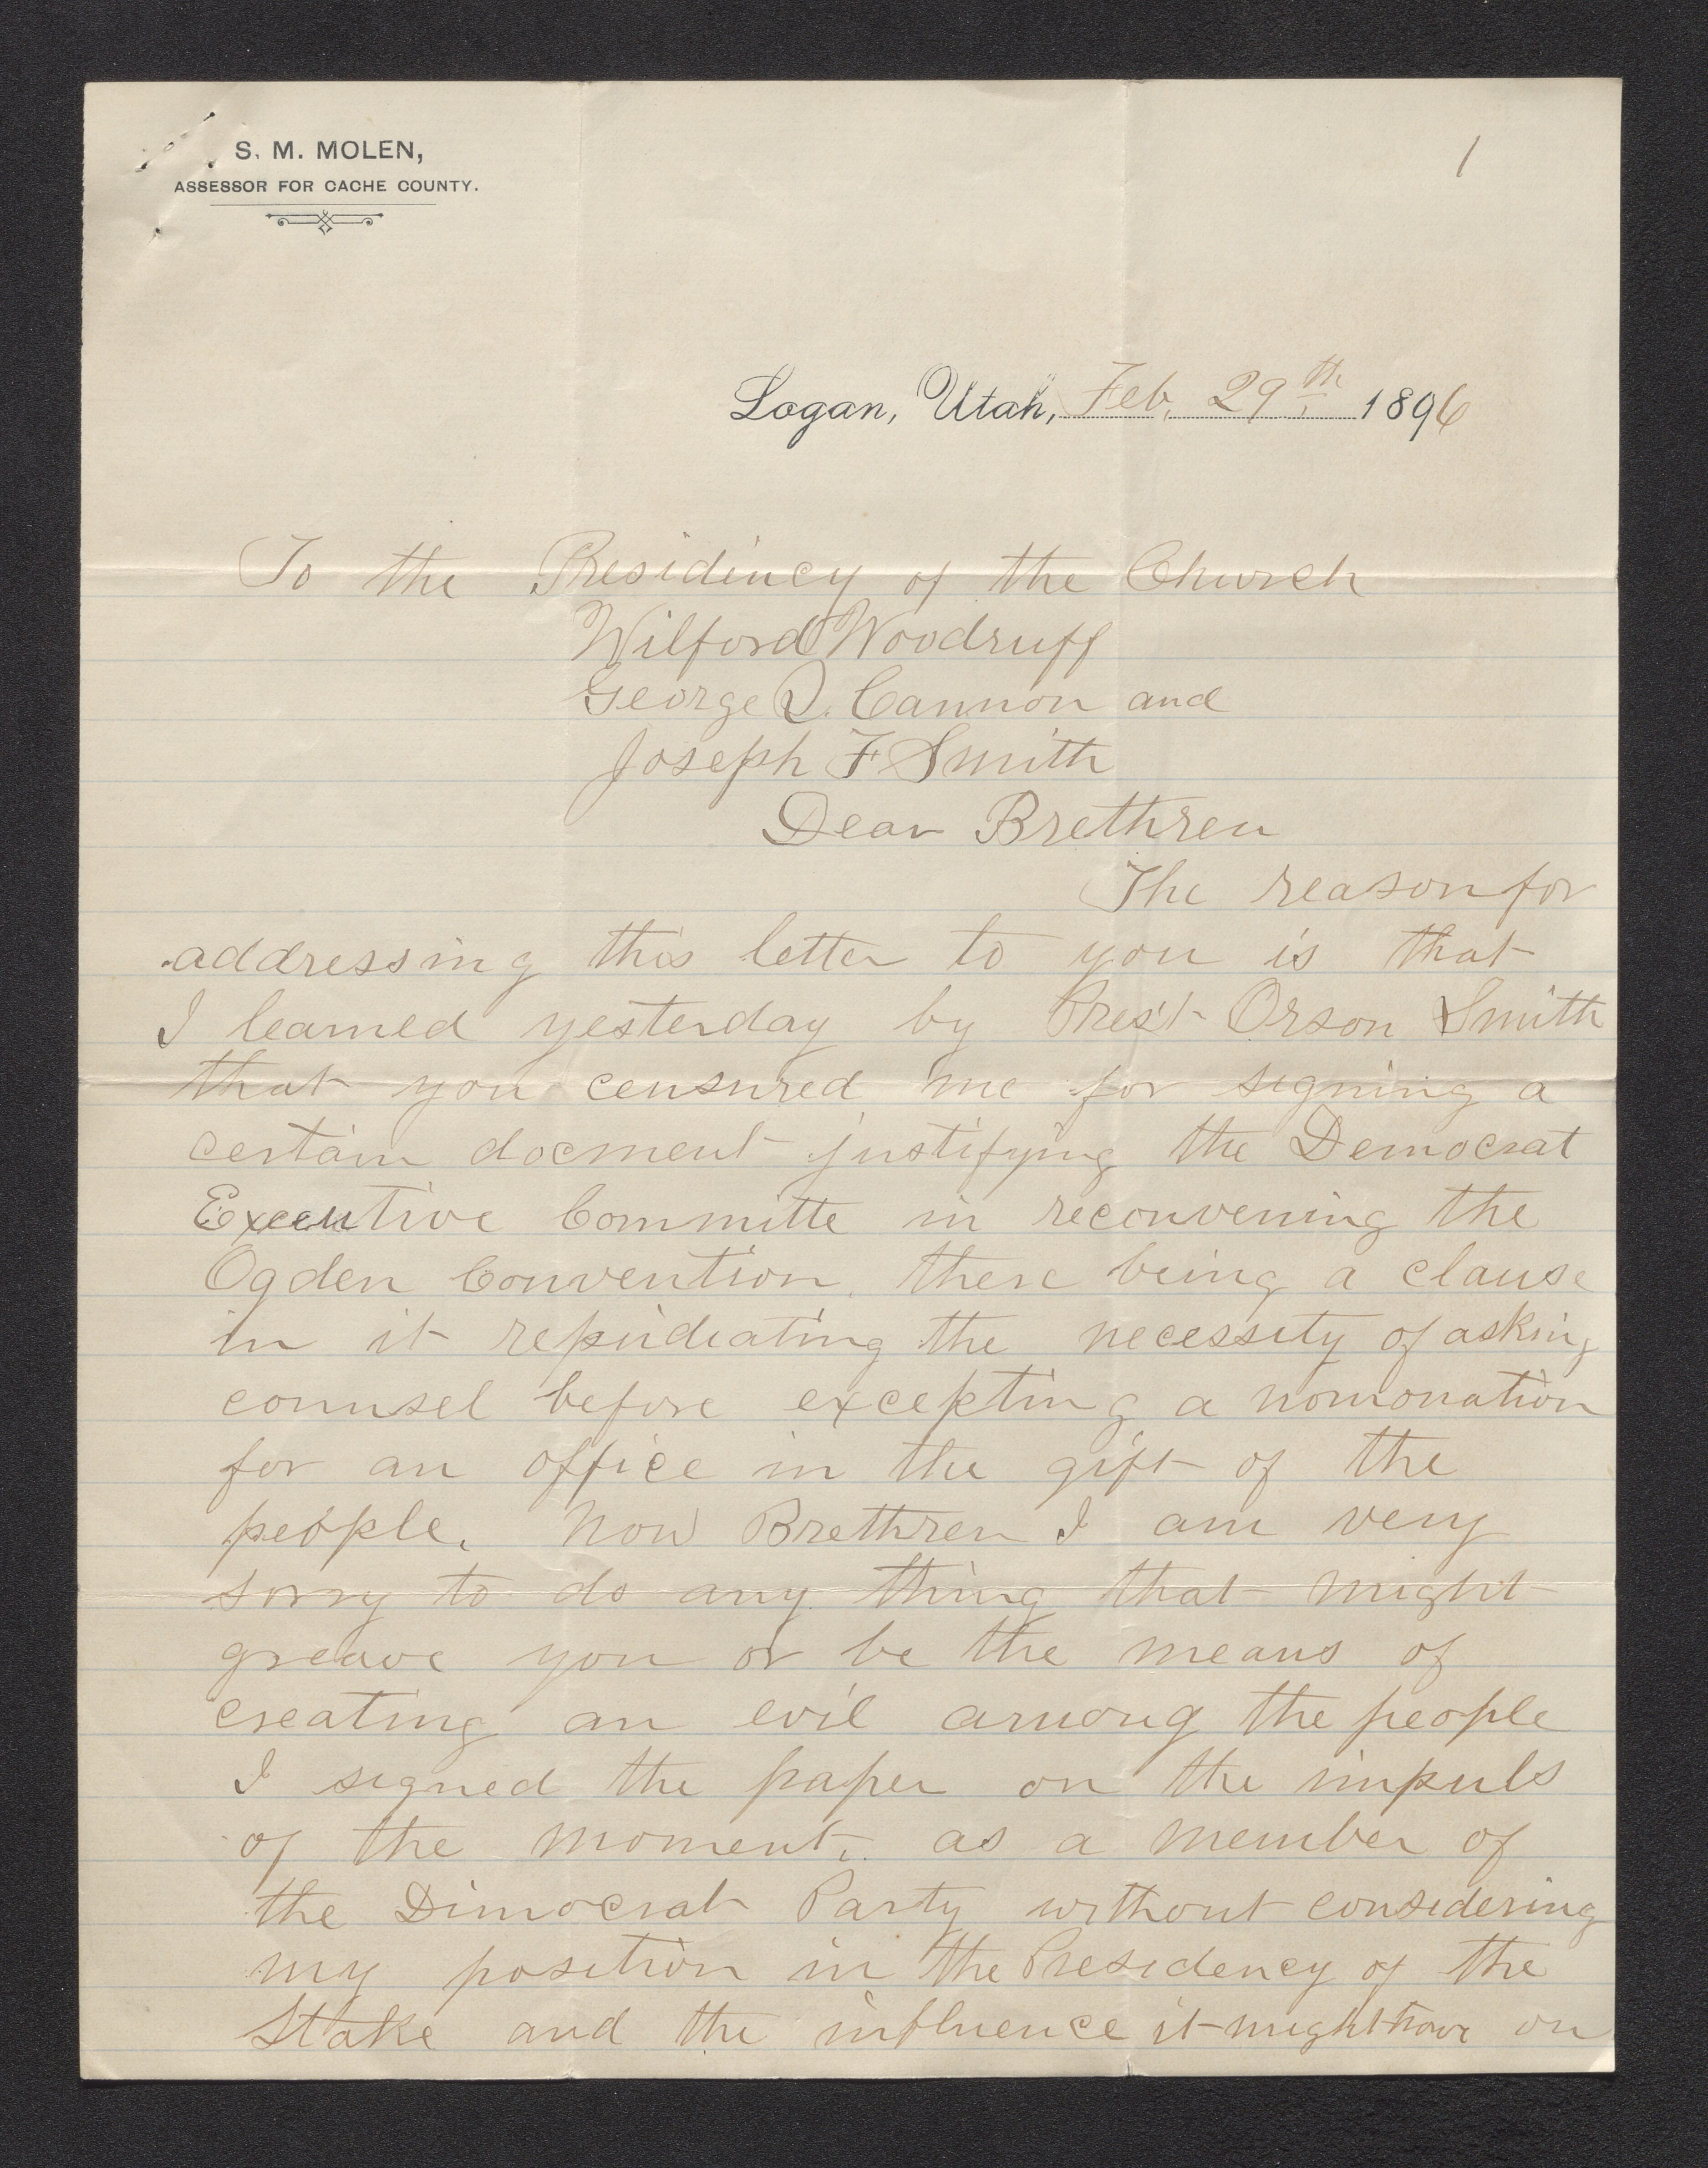 S. M. MOLEN,
ASSESSOR FOR CACHE COUNTY.
1
Logan, Utah, Feb. 29th 1896
To the Presidincy of the Church
Wilford Woodruff
George Q. Cannon and
Joseph F Smith
Dear Brethren
The reason for
addressing this letter to you is that
I learned yesterday by Prest Orson Smith
that you censured me for signing a
certain docment justifying the Democrat
Executive Committe in reconvening the
Ogden Convention, there being a clause
in it repudiating the necessity of asking
counsel before excepting a nomonation
for an office in the gift of the
people. Now Brethren I am very
sorry to do any thing that might
greave you or be the means of
creating an evil among the people
I signed the paper on the impuls
of the moment, as a member of
the Dimocrat Party without considering
my position in the Presidency of the
Stake and the influence it might have on